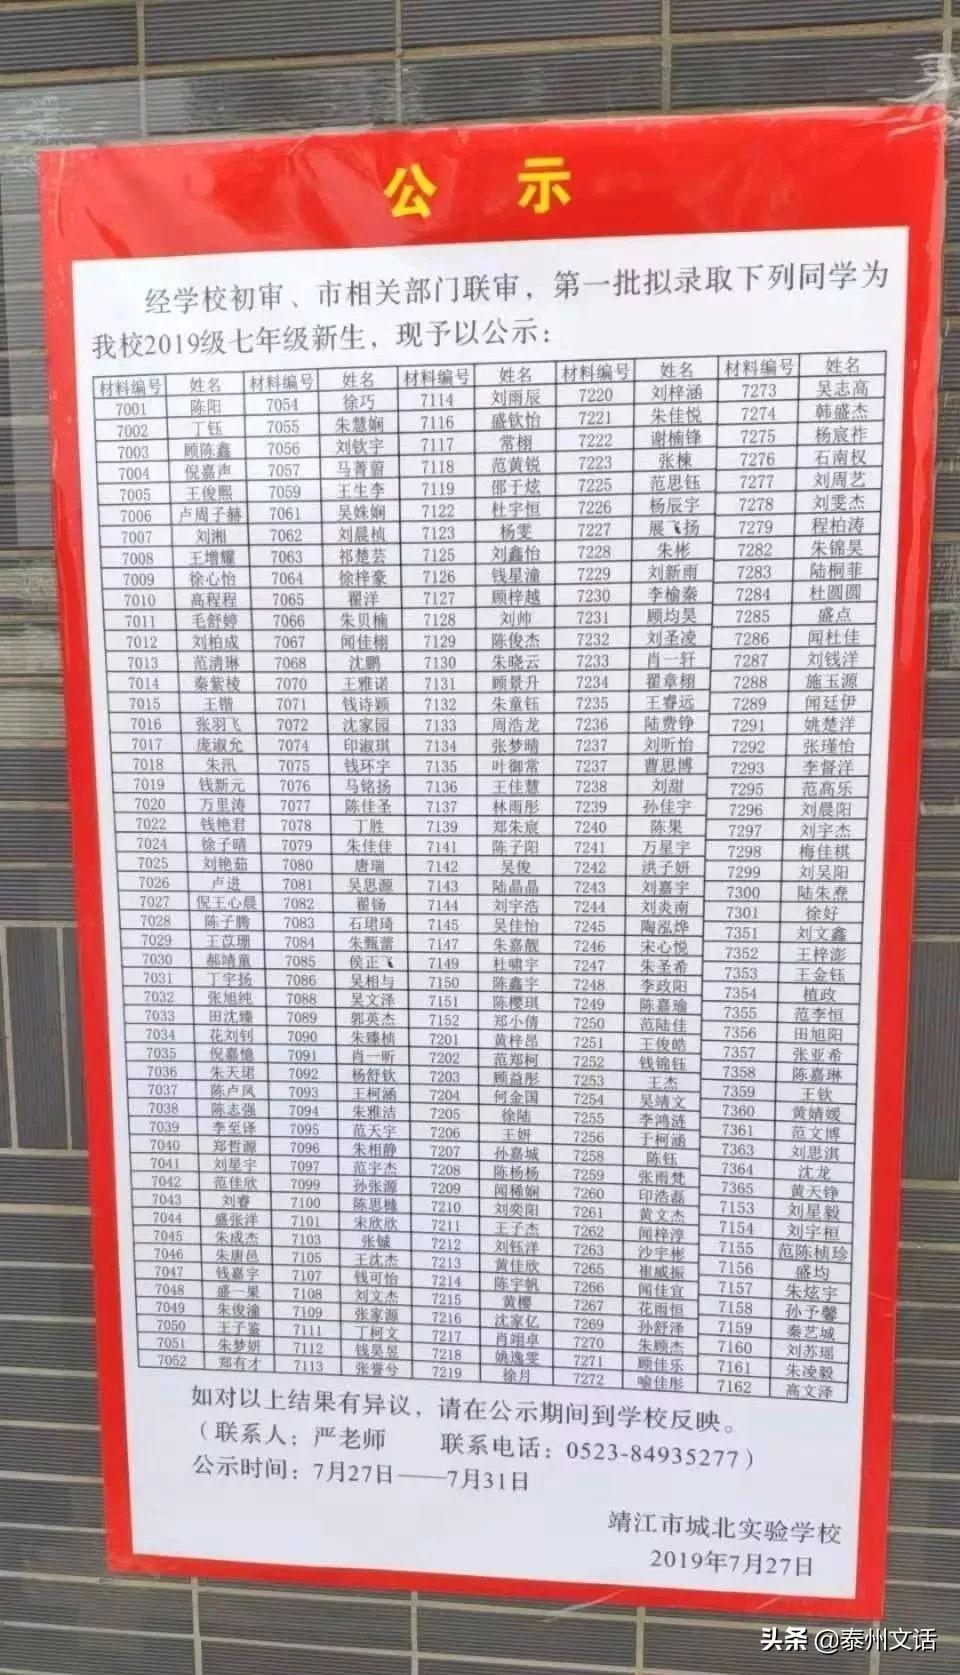 公 示
经学校初审、市相关部门联审，第一批拟录取下列同学为
我校2019级七年级新生，现予以公示：
材料编号 姓名 材料编号 姓名 材料编号 姓名 材料编号 姓名 材料编号 姓名
7001 陈阳 7054 徐巧 7114 刘雨辰 7220 刘梓涵 7273 吴志高
7002 丁钰 7055 朱慧娴 7116 盛钦怡 7221 朱佳悦 7274 韩盛杰
7003 顾陈鑫 7056 刘钦宇 7117 常栩 7222 谢楠锋 7275 杨宸祚
7004 倪嘉声 7057 马菁蔚 7118 范黄锐 7223 张栋 7276 石南权
7005 王俊熙 7059 王生李 7119 邵于炫 7225 范思钰 7277 刘周艺
7006 卢周子赫 7061 吴姝娴 7122 杜宇恒 7226 杨辰宇 7278 刘雯杰
7007 刘湘 7062 刘晨桢 7123 杨雯 7227 展飞扬 7279 程柏涛
7008 王增耀 7063 祁楚芸 7125 刘鑫怡 7228 朱彬 7282 朱锦昊
7009 徐心怡 7064 徐梓豪 7126 钱星潼 7229 刘新雨 7283 陆桐菲
7010 高程程 7065 翟洋 7127 顾梓越 7230 李榆秦 7284 杜圆圆
7011 毛舒婷 7066 朱贝楠 7128 刘帅 7231 顾均昊 7285 盛点
7012 刘柏成 7067 闻佳栩 7129 陈俊杰 7232 刘圣凌 7286 闻杜佳
7013 范清琳 7068 沈鹏 7130 朱晓云 7233 肖一轩 7287 刘钱洋
7014 秦紫棱 7070 王雅诺 7131 顾景升 7234 翟章栩 7288 施玉源
7015 王锴 7071 钱诗颖 7132 朱童钰 7235 王睿远 7289 闻廷伊
7016 张羽飞 7072 沈家园 7133 周浩龙 7236 陆费铮 7291 姚楚洋
7017 庞淑允 7074 印淑琪 7134 张梦晴 7237 刘昕怡 7292 张瑾怡
7018 朱汛 7075 钱环宇 7135 叶御常 7237 曹思博 7293 李督洋
7019 钱新元 7076 马铭扬 7136 王佳慧 7238 刘甜 7295 范高乐
7020 万里涛 7077 陈佳圣 7137 林雨彤 7239 孙佳宇 7296 刘晨阳
7022 钱艳君 7078 丁胜 7139 郑朱宸 7240 陈果 7297 刘宇杰
7024 徐子晴 7079 朱佳佳 7141 陈子阳 7241 万星宇 7298 梅佳棋
7025 刘艳茹 7080 唐瑞 7142 吴俊 7242 洪子妍 7299 刘吴阳
7026 卢进 7081 吴思源 7143 陆晶晶 7243 刘嘉宇 7300 陆朱焘
7027 倪王心晨 7082 翟钖 7144 刘宇浩 7244 刘炎南 7301 徐好
7028 陈子腾 7083 石珺琦 7145 吴佳怡 7245 陶泓烨 7351 刘文鑫
7029 王苡珊 7084 朱甄蕾 7147 朱嘉靓 7246 宋心悦 7352 王梓澎
7030 郝靖童 7085 侯正飞 7149 杜啸宇 7247 朱圣希 7353 王金钰
7031 丁宇扬 7086 吴相与 7150 陈鑫宇 7248 李政阳 7354 植政
7032 张旭纯 7088 吴文泽 7151 陈樱琪 7249 陈嘉瑜 7355 范李恒
7033 田沈臻 7089 郭英杰 7152 郑小倩 7250 范陆佳 7356 田旭阳
7034 花刘钊 7090 朱臻桢 7201 黄梓昂 7251 王俊皓 7357 张亚希
7035 倪嘉憶 7091 肖一昕 7202 范郑柯 7252 钱锦钰 7358 陈嘉琳
7036 朱天珺 7092 杨舒钦 7203 顾益彤 7253 王杰 7359 王钦
7037 陈卢凤 7093 王柯涵 7204 何金国 7254 吴靖文 7360 黄婧媛
7038 陈志强 7094 朱雅洁 7205 徐陆 7255 李鸿涟 7361 范文博
7039 李至译 7095 范天宇 7206 王妍 7256 于柯涵 7363 刘思淇
7040 郑哲源 7096 朱相静 7207 孙嘉城 7258 陈钰 7364 沈龙
7041 刘星宇 7097 范宇杰 7208 陈杨杨 7259 张雨梵 7365 黄天铮
7042 范佳欣 7099 孙张源 7209 闻稀娴 7260 印浩磊 7153 刘星毅
7043 刘睿 7100 陈思槺 7210 刘奕阳 7261 黄文杰 7154 刘宇桓
7044 盛张洋 7101 宋欣欣 7211 王子杰 7262 闻梓淳 7155 范陈桢珍
7045 朱成杰 7103 张铖 7212 刘钰洋 7263 沙宇彬 7156 盛均
7046 朱唐邑 7105 王沈杰 7213 黄佳欣 7265 崔威振 7157 朱炫宇
7047 钱嘉宇 7107 钱可怡 7214 陈宇帆 7266 闻佳宜 7158 孙予馨
7048 盛一果 7108 刘文杰 7215 黄樱 7267 花雨恒 7159 秦艺城
7049 朱俊潼 7109 张家源 7216 沈家亿 7269 孙舒泽 7160 刘苏瑶
7050 王子鉴 7111 丁柯文 7217 肖翊卓 7270 朱顾杰 7161 朱凌毅
7051 朱梦妍 7112 钱昊昱 7218 姚逸雯 7271 顾佳乐 7162 高文泽
7052 郑有才 7113 张誉兮 7219 徐月 7272 喻佳彤
如对以上结果有异议，请在公示期间到学校反映。
（联系人：严老师 联系电话：0523-84935277）
公示时间：7月27日——7月31日
靖江市城北实验学校
2019年7月27日
头条 @泰州文话